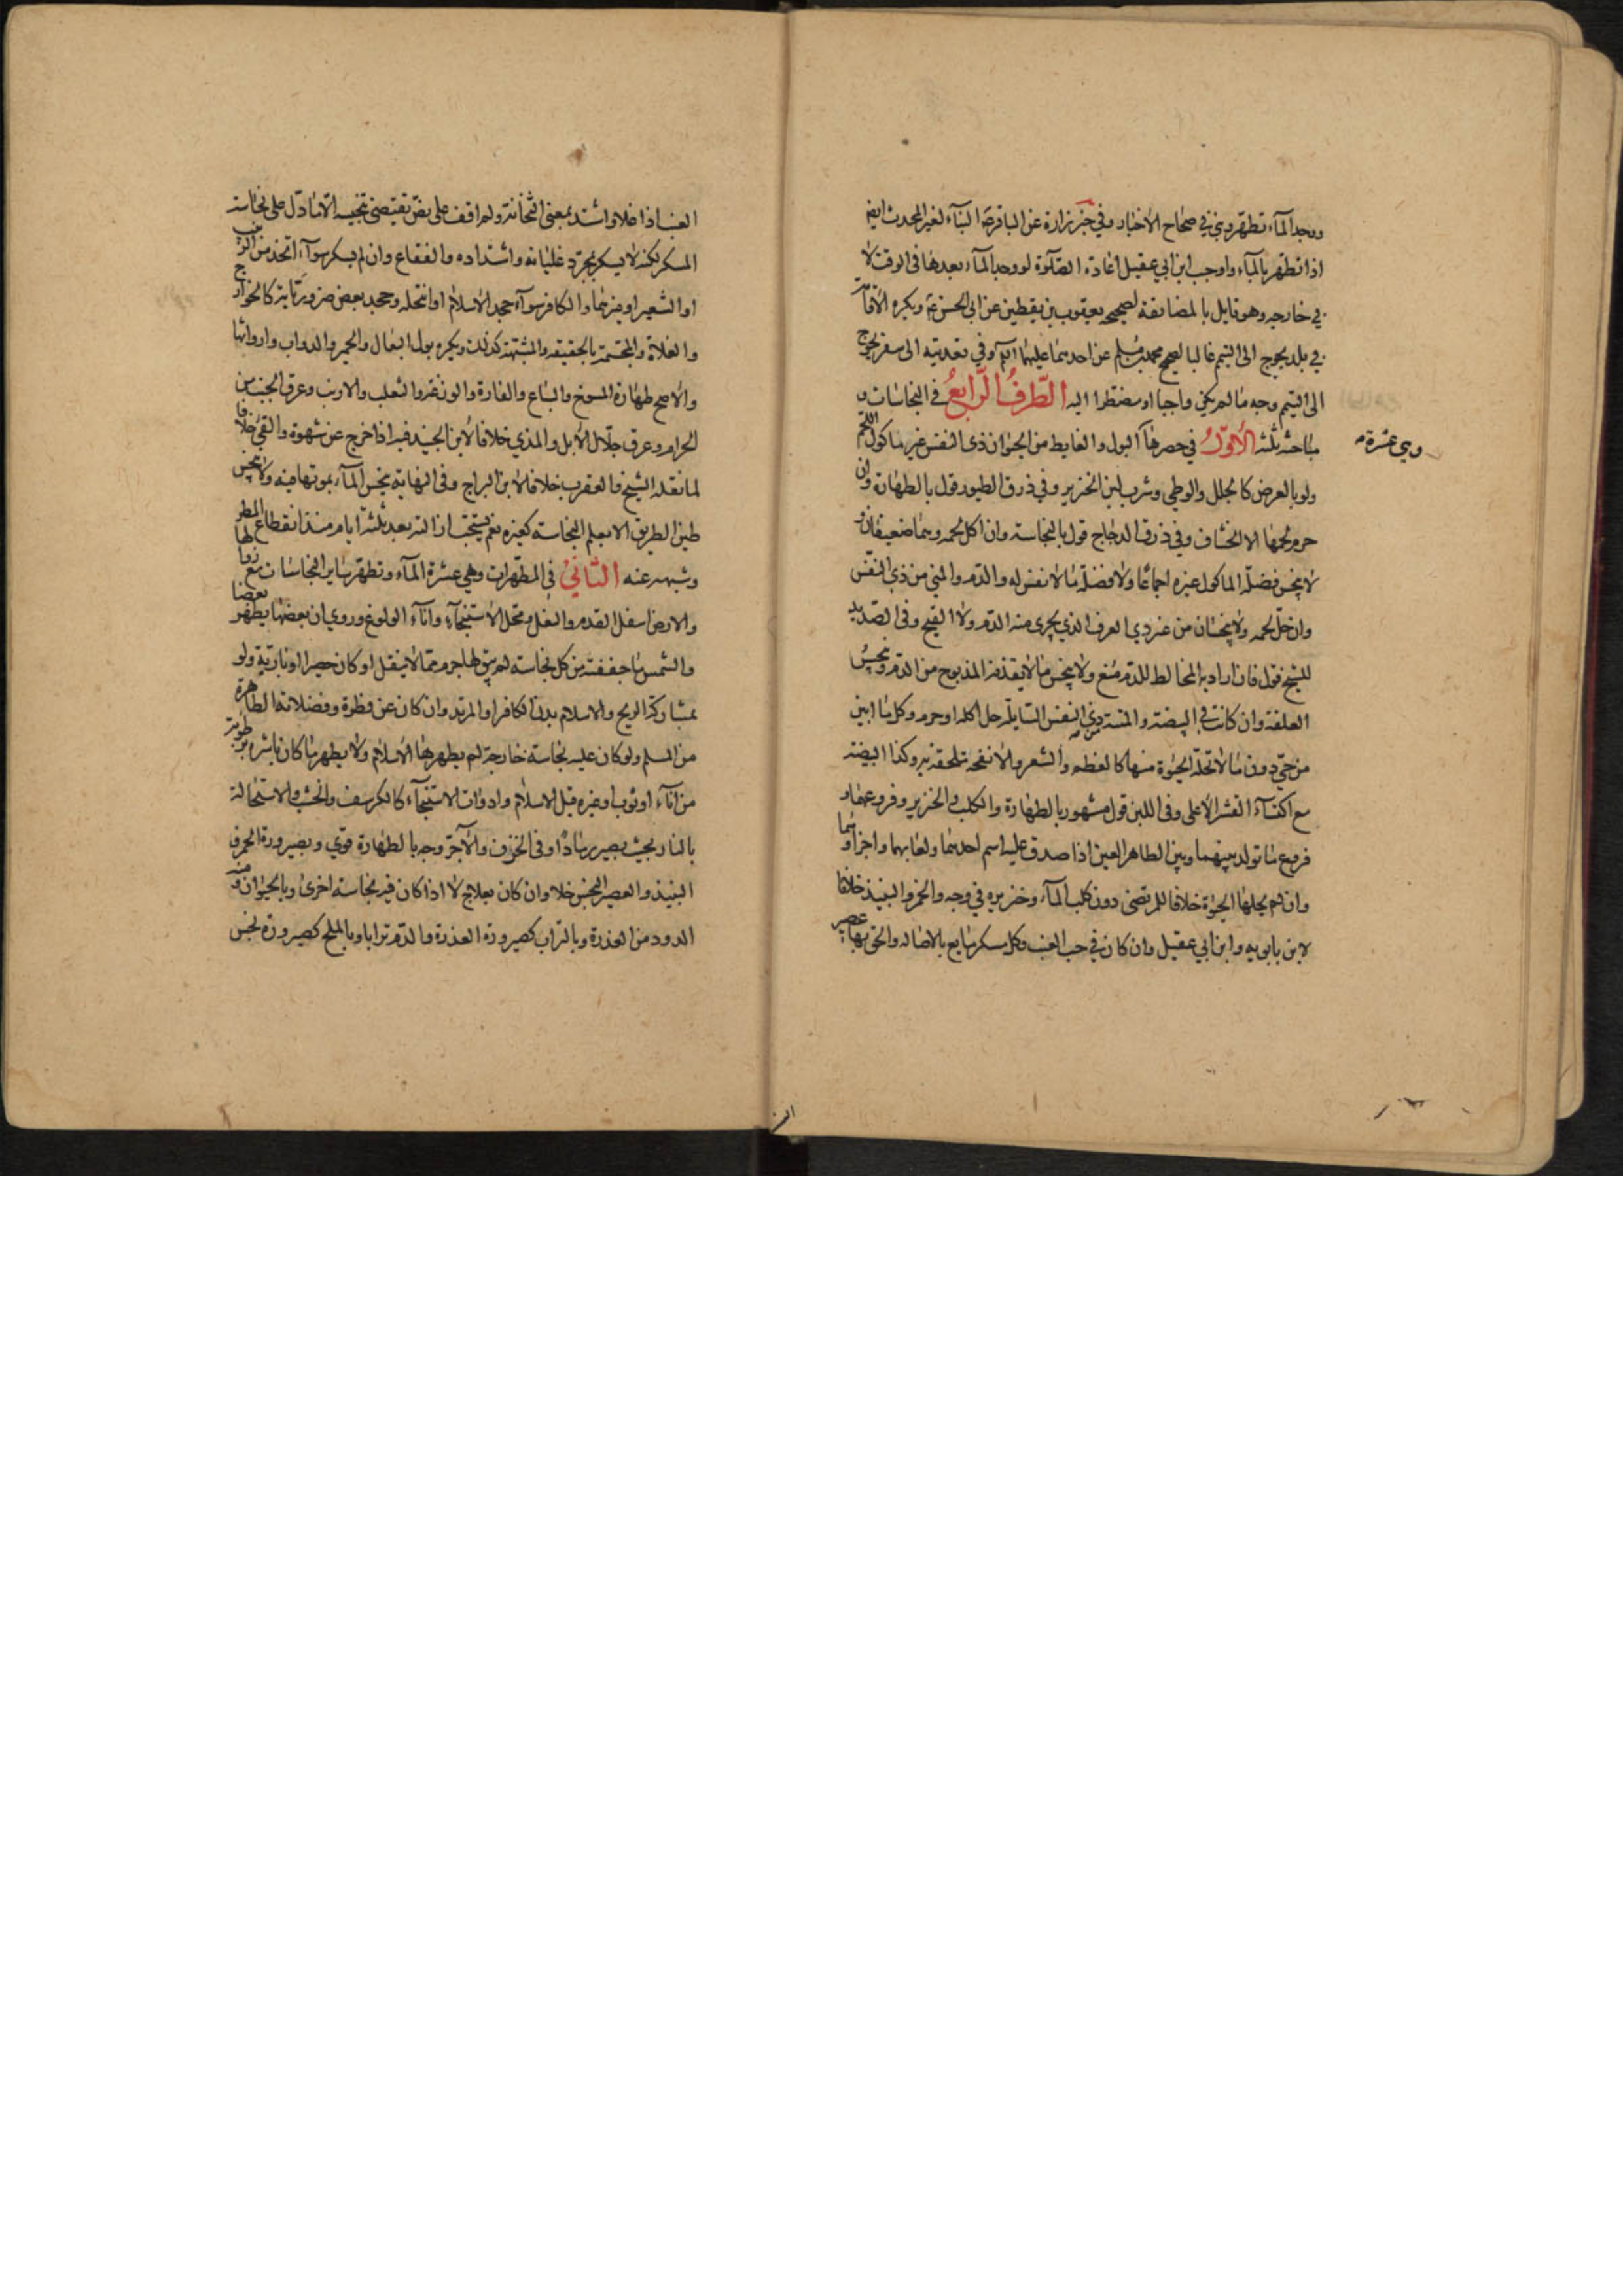 ووجد الماء تطهر وبنى في صحاح الاخبار وفي خبر زرارة عن الباقر البناء لغير المحدث ايضا
اذا تطهر بالماء واوجب ابن ابي عقيل اعادة الصلوة لو وجد الماء بعدها في الوقت لا
في خارجه وهو قايل بالمضايقة لصحيحة يعقوب بن يقطين عن ابي الحسن ع ويكره الاقامة
في بلد يحوج الى التيمم غالبا لصحيح محمد بن مسلم عن احدهما عليهما السلام وفي تعديته الى سفر يحوج
الى التيمم وجه ما لم يكن واجبا او مضطرا اليه الطرف الرابع في النجاسات و
مباحثه ثلثة الاول في حصرها البول والغايط من الحيوان ذي النفس غير ماكول اللحم
وهي عشرة
ولو بالعرض كالجلل والوطي وشرب لبن الخنزير وفي ذرق الطيور قول بالطهارة وان
حرم لحمها الا الخشاف وفي ذرق الدجاج قول بالنجاسة وان اكل لحمه وهما ضعيفان و
لا ينجس فضلة الماكول غيره اجماعا ولا فضلة ما لا نفس له والدم والمني من ذي النفس
وان حل لحمه ولا ينجسان من غير ذي العرق الذي يجري منه الدم ولا القيح وفي الصديد
للشيخ قول فان اراد به المخالط للدم منع ولا ينجس ما لا يقذفه المذبوح من الدم وينجس
العلقة وان كانت في البيضة والميتة من ذي النفس السايلة حل اكله او حرم وكل ما ابين
من حي دون ما لا تحله الحيوة منها كالعظم والشعر والانفحة تلحقه به وكذا البيضة
مع اكتساء القشر الاعلى وفي اللبن قول مشهور بالطهارة والكلب والخنزير وفروعهما و
فروع ما تولد بينهما وبين الطاهر العين اذا صدق عليه اسم احدهما ولعابهما واجزاؤهما
وان لم يحلها الحيوة خلافا للمرتضى دون كلب الماء وخنزيره في وجه والخمر والنبيذ خلافا
لابن بابويه وابن ابي عقيل وان كان في حب العنب وكل مسكر مايع بالاصالة والحق بها عصير
العنب اذا غلا واشتد بمعنى الثخانة ولم اقف على نص يقتضي تنجيسه الا ما دل على نجاسة
المسكر لكنه لا يسكر بمجرد غليانه واشتداده والفقاع وان لم يسكر سواء اتخذ من الزبيب
او الشعير او غيرهما والكافر سواء جحد الاسلام او انتحله وجحد بعض ضرورياته كالخوارج
والغلاة والمجسمة بالحقيقه والمشبهة كذلك ويكره بول البغال والحمير والدواب وارواثها
والاصح طهارة المسوخ والسباع والفارة والوزغة والثعلب والارنب وعرق الجنب من
الحرام وعرق جلال الابل والمذي خلافا لابن الجنيد فيه اذا خرج عن شهوة والقيء خلافا
لما نقله الشيخ والعقرب خلافا لابن البراج وفي النهاية ينجس الماء بموتها فيه ولا ينجس
طين الطريق الا بعلم النجاسة كغيره نعم يستحب ازالته بعد ثلثة ايام منذ انقطاع المطر
وشبهه عنه الثاني في المطهرات وهي عشرة الماء وتطهر ساير النجاسات مع زوالها
والارض اسفل القدم والنعل ومحل الاستنجاء واناء الولوغ وروي ان بعضها يطهر بعضا
والشمس ما جففته من كل نجاسة لم يبق لها جرم مما لا ينقل او كان حصيرا او بارية ولو
بمشاركة الريح والاسلام بدن الكافر او المرتد وان كان عن فطرة وفضلاته الطاهرة
من المسلم ولو كان عليه نجاسة خارجة لم يطهرها الاسلام ولا يطهر ما كان باشره برطوبة
من اناء او ثوب او غيره قبل الاسلام وادوات الاستنجاء كالكرسف والخشب والاستحالة
بالنار بحيث يصير رمادا وفي الخزف والاجر وجه بالطهارة قوي وبصيرورة الخمر و
النبيذ والعصير النجس خلا وان كان بعلاج لا اذا كان فيه نجاسة اخرى وبالحيوان ومنه
الدود من العذرة وبالتراب كصيرورة العذرة والدم ترابا وبالملح كصيرورة نجس